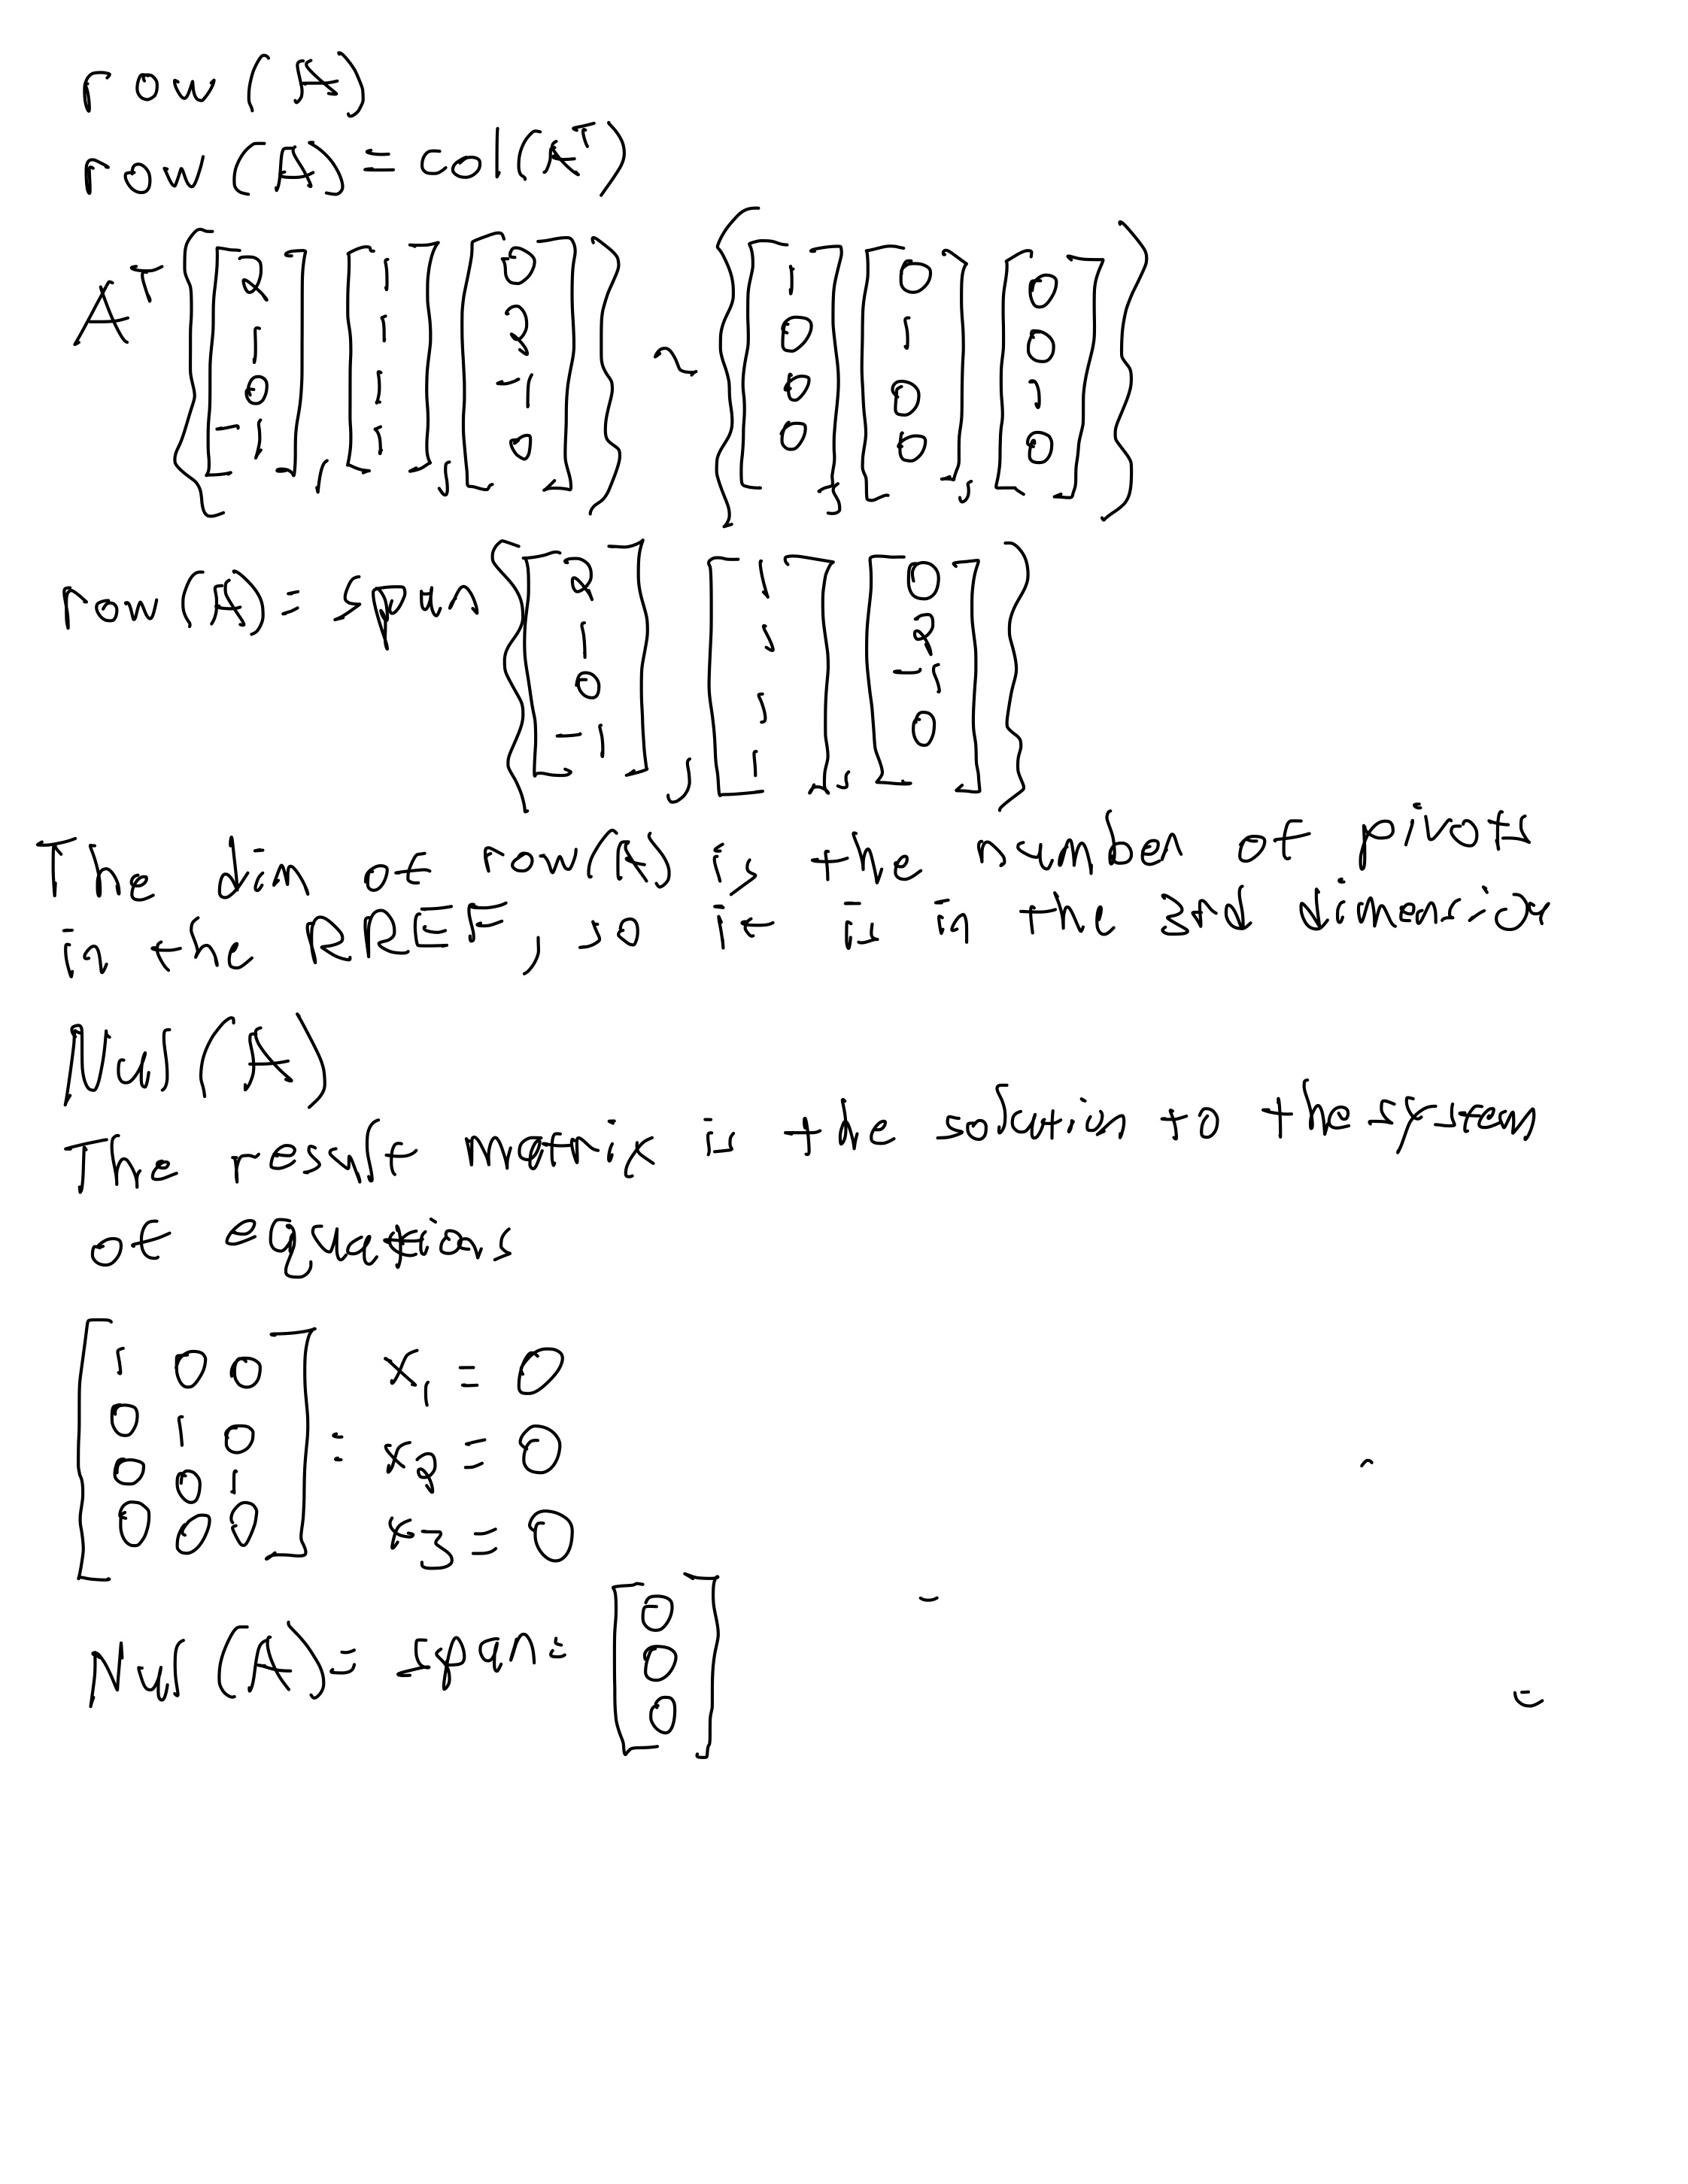 row(A)
row(A) = col(Aᵀ)
Aᵀ {[2 1 0 -1], [1 1 1 1], [0 2 -1 0]} ~ {[1 0 0 0], [0 1 0 0], [0 0 1 0]}
row(A) = span {[2 1 0 -1], [1 1 1 1], [0 2 -1 0]}
The dim of row(A) is the number of pivots
in the RREF, so it is in the 3rd dimension
Nul(A)
The result matrix is the solution to the system
of equations
[1 0 0
0 1 0
0 0 1
0 0 0] = x₁ = 0
x₂ = 0
x₃ = 0
Nul(A) = span = [0 0 0]